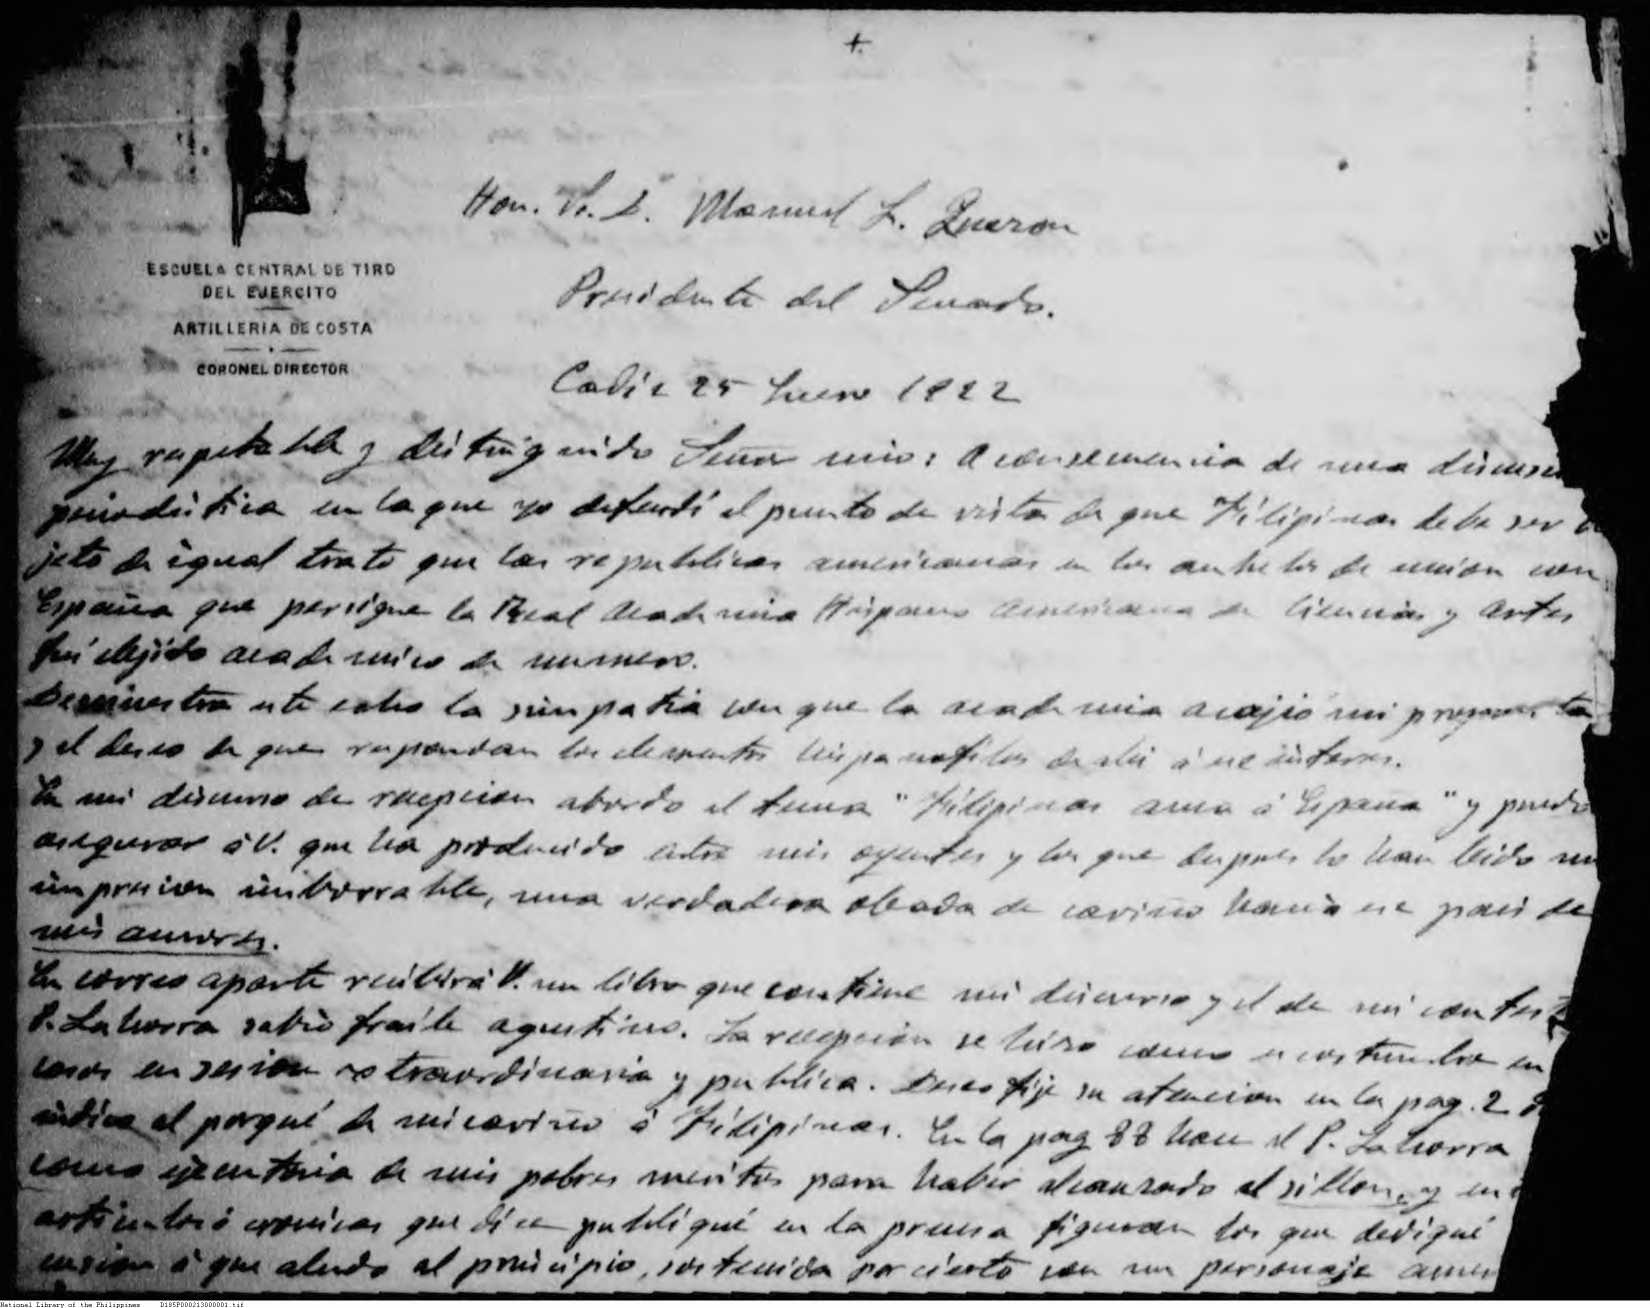 +
Hon. Sr. D. Manuel L. Quezon
ESCUELA CENTRAL DE TIRO
DEL EJERCITO
Presidente del Senado.
ARTILLERIA DE COSTA
CORONEL DIRECTOR
Cadiz 25 Enero 1922
Muy respetable y distinguido Señor mio: A consecuencia de una discusi
periodistica en la que yo defendí el punto de vista de que Filipinas debe ser
jeto de igual trato que las republicas americanas en los anhelos de union con
España que persigue la Real Academia Hispano Americana de Ciencias y Artes
fuí elejido academico de numero.
Demuestra este exito la simpatia con que la academia acojió mi propuesta
y el deseo de que respondan los elementos hispanofilos de ahi á ese interes.
En mi discurso de recepcion abordo el tema "Filipinas ama á España" y puedo
asegurar á V. que ha producido entre mis oyentes y los que despues lo han leido un
impresion imborrable, una verdadera oleada de cariño hacia ese pais de
mis amores.
En correo aparte recibirá V. un libro que contiene mi discurso y el de mi contest
P. Lahorra sabio fraile agustino. La recepcion se hizo como es costumbre en
casos en sesion extraordinaria y publica. Deseo fije su atencion en la pag. 2
indica el porqué de mi cariño á Filipinas. En la pag 88 hace el P. Lahorra
como ejecutoria de mis pobres meritos para haber alcanzado el sillon, y en
articulos ó cronicas que dice publiqué en la prensa figuran los que dediqué
cusion á que aludo al principio, sostenida por cierto con un personaje amer
National Library of the Philippines D185P000213000001.tif